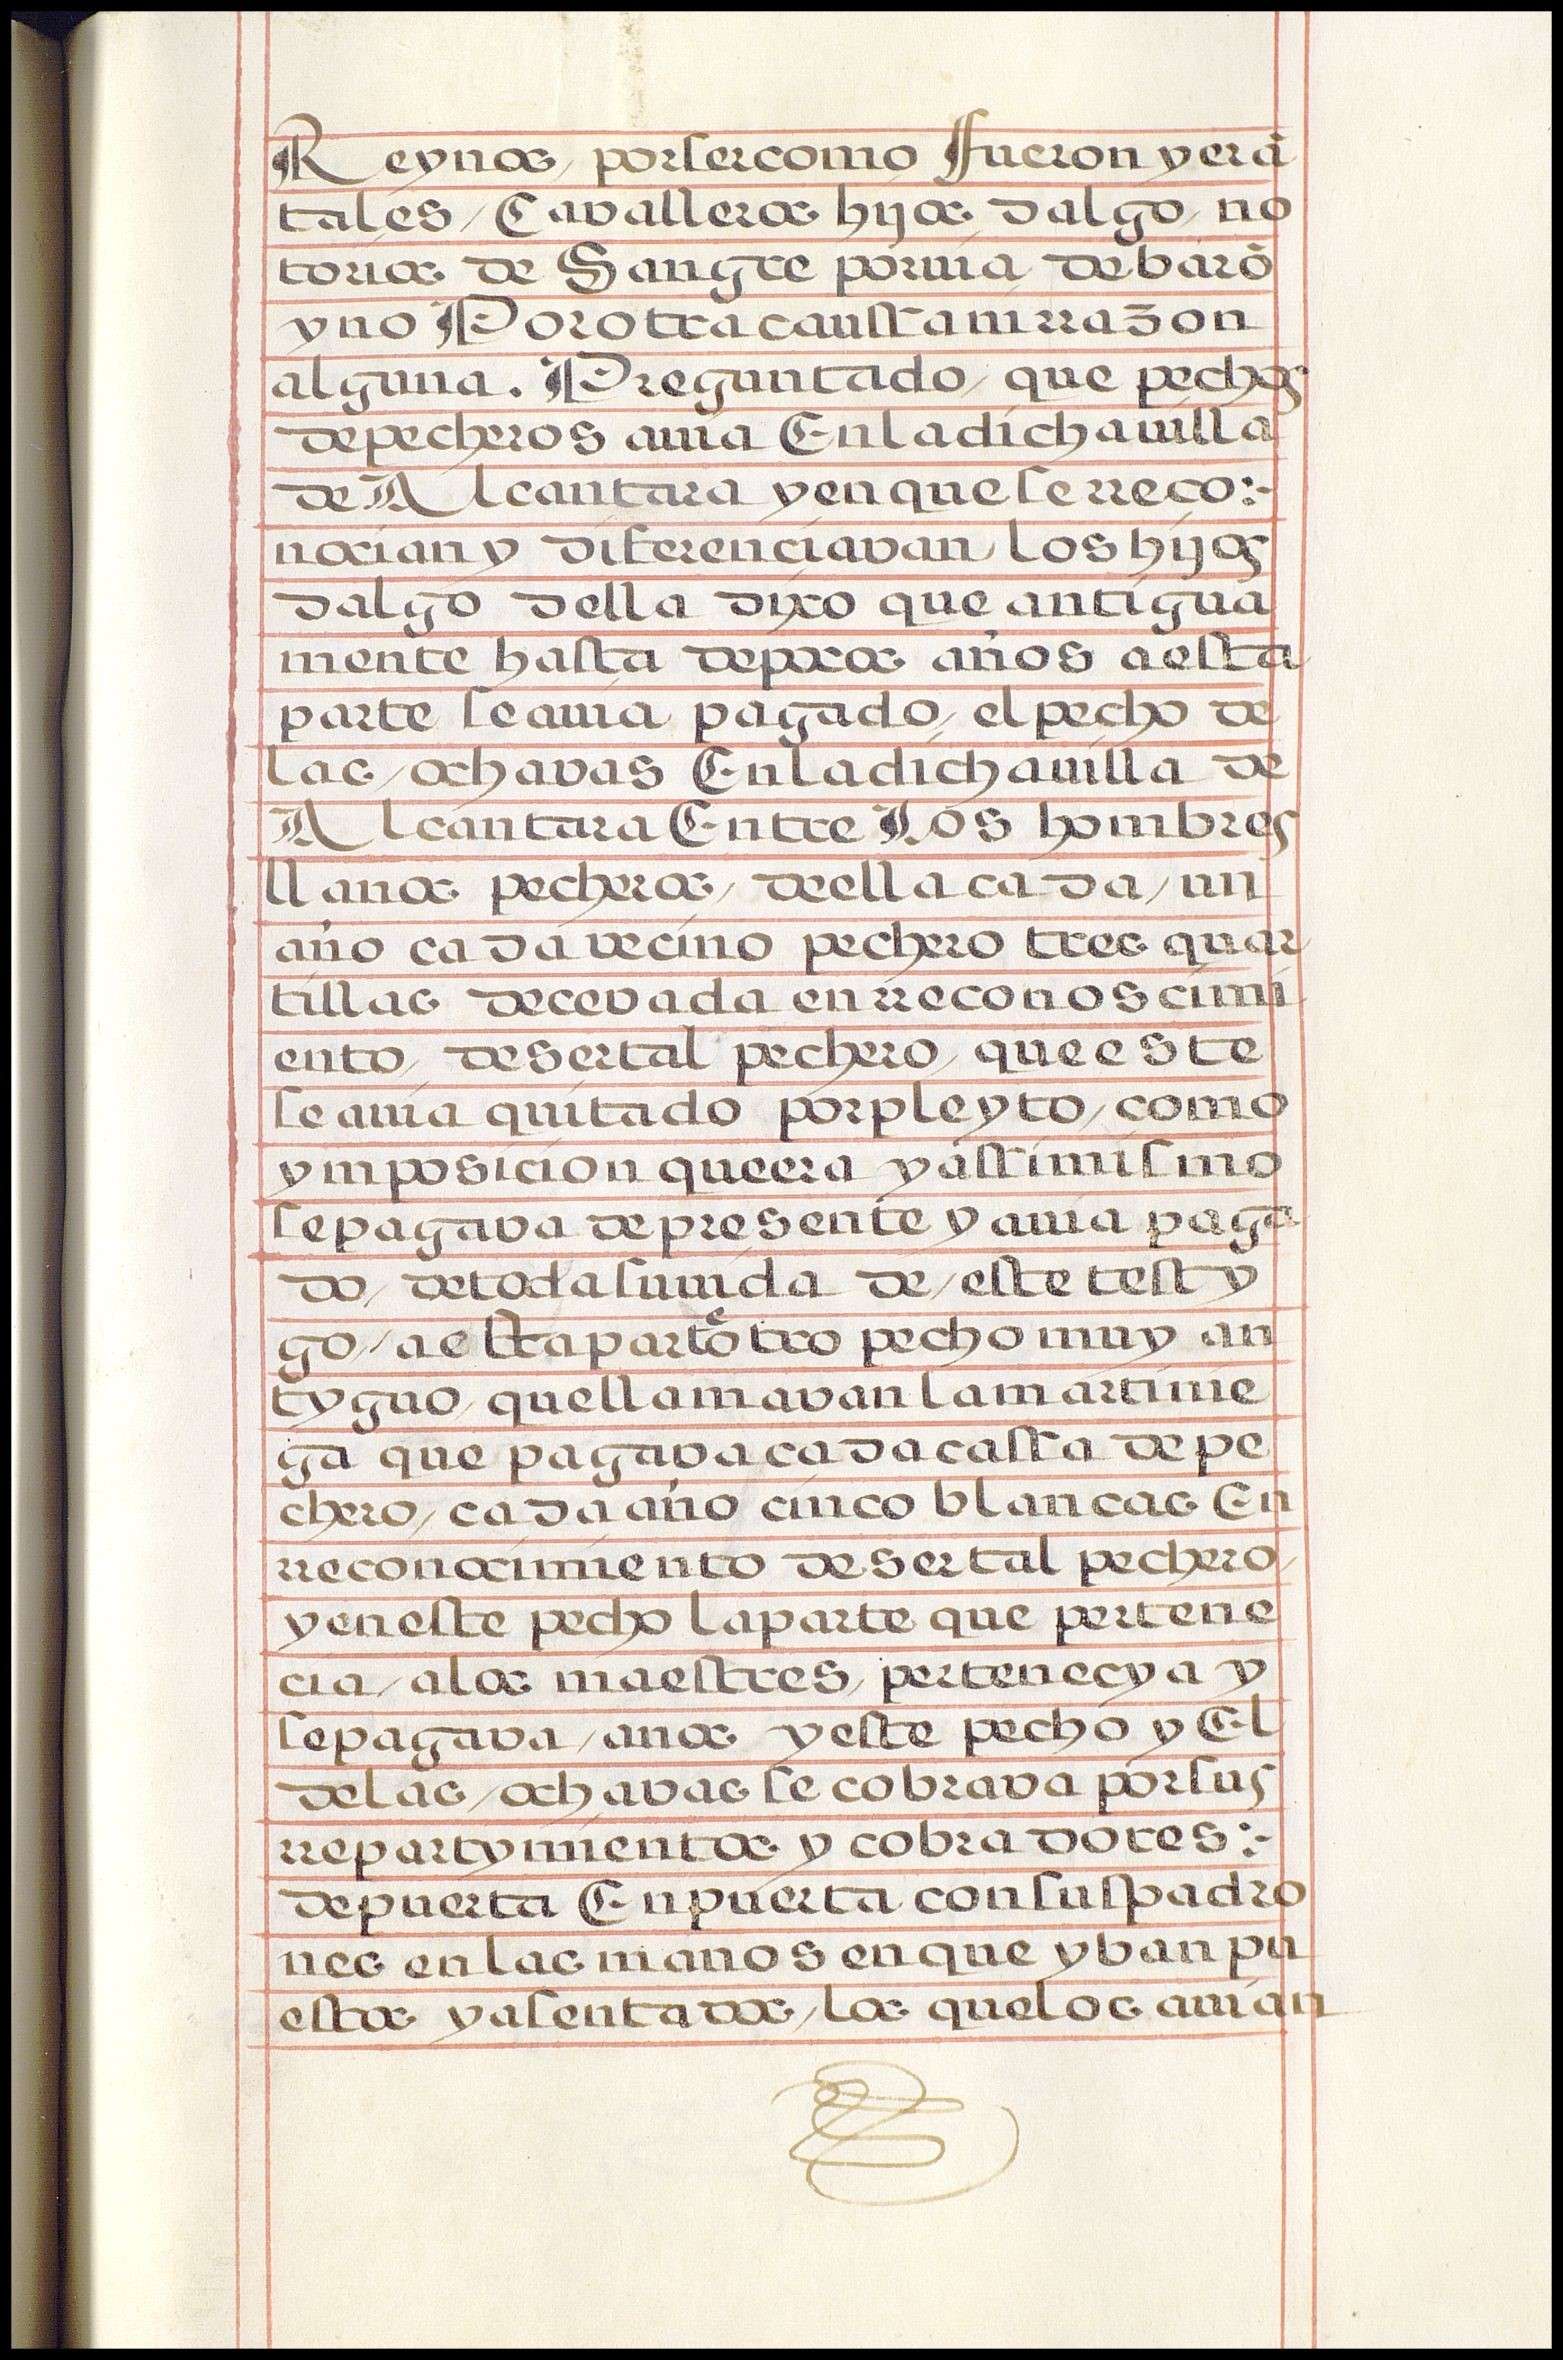 Reynos, por ser como fueron y erã
tales, Cavalleros hijos dalgo, no
torios de Sangre por uia de barõ
y no Por otra caussa ni rrazon
alguna. Preguntado, que pechos
de pecheros auia En la dicha uilla
de Alcantara y en que se rreco:-
nocian y diferenciavan los hijos
dalgo della dixo que antigua
mente hasta de pocos años a esta
parte se auia pagado, el pecho de
las, ochavas En la dicha uilla de
Alcantara Entre Los hombres
llanos pecheros, de ella cada, un
año cada vecino pechero tres quar
tillas de cevada en rreconoscimi
ento, de ser tal pechero, que este
se auia quitado por pleyto, como
ymposicion que era y assimismo
se pagava de presente y auia paga
do, de toda su uida de, este testy
go, a esta parte otro pecho muy an
tyguo, que llamavan la martinie
ga que pagava cada cassa de pe
chero, cada año cinco blancas En
rreconocimiento de ser tal pechero,
y en este pecho la parte que pertene
cia, a los maestres, pertenecya y
se pagava, a nos y este pecho y El
de las, ochavas se cobrava por sus
rrepartymientos y cobradores:-
de puerta En puerta con sus padro
nes en las manos en que yban pu
estos y asentados, los que los auian